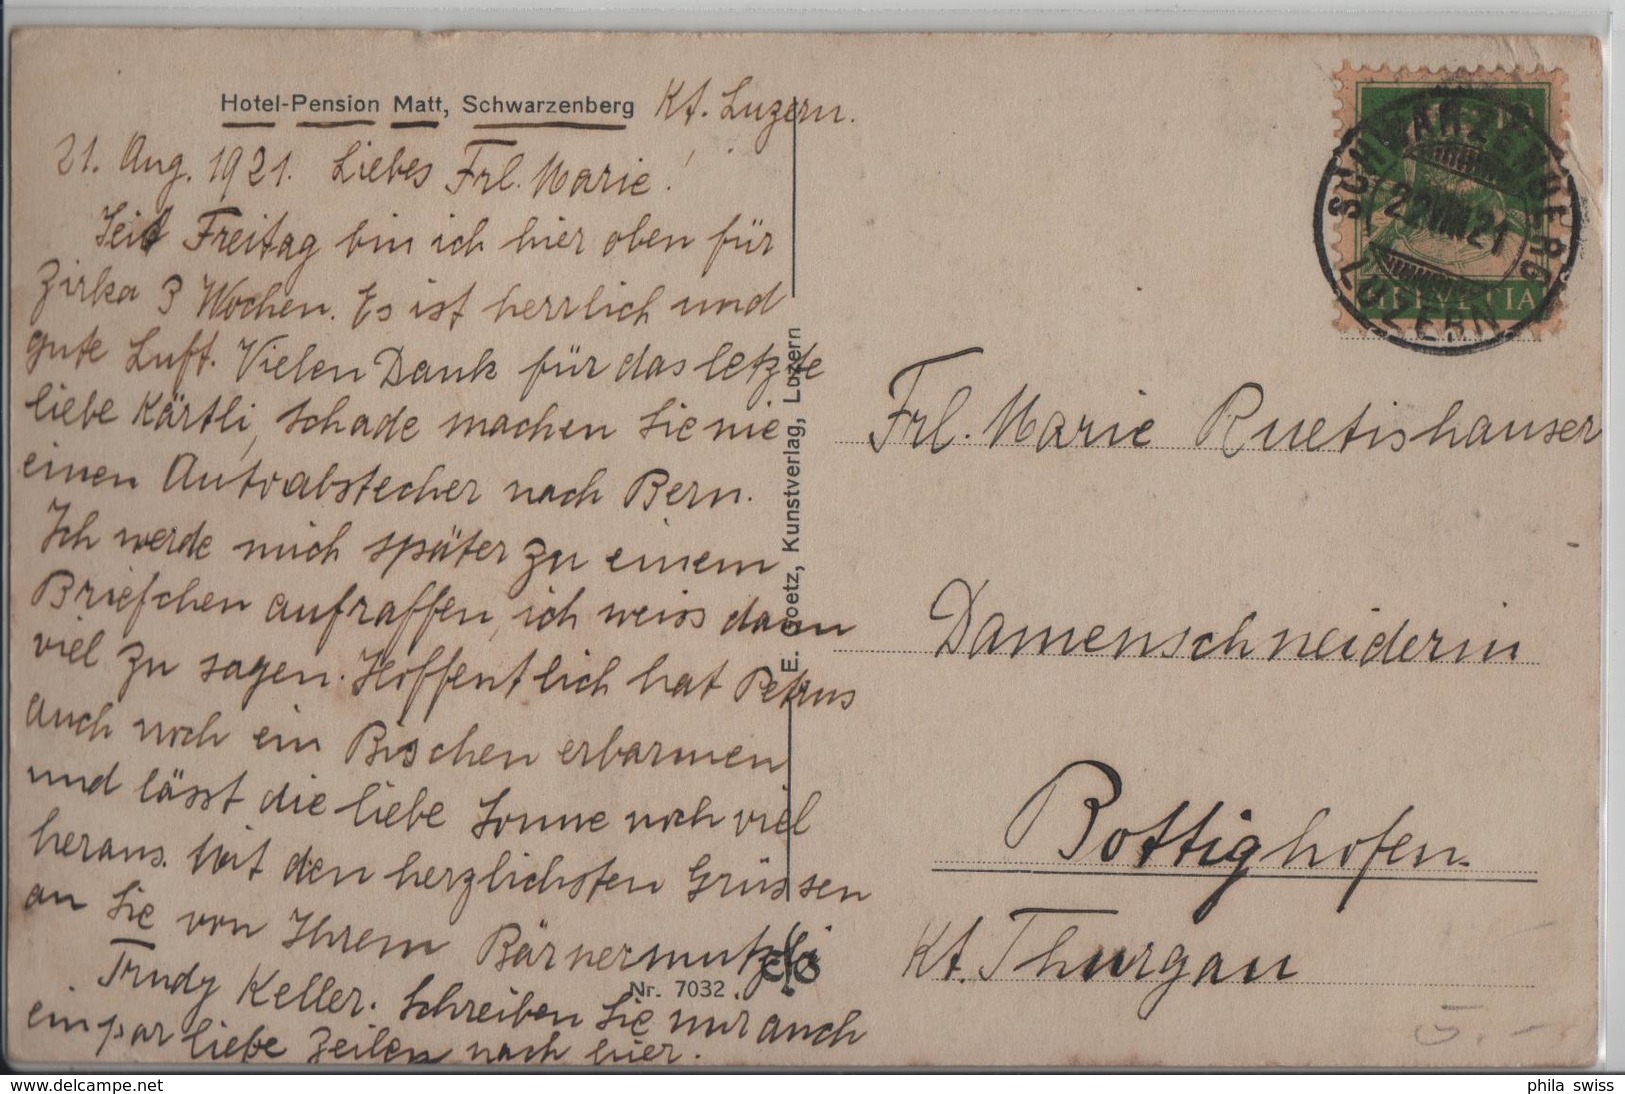 Hotel-Pension Matt, Schwarzenberg Kt. Luzern.
21. Aug. 1921. Liebes Frl. Marie!
Seit Freitag bin ich hier oben für
zirka 3 Wochen. Es ist herrlich und
gute Luft. Vielen Dank für das letzte
liebe Kärtli, schade machen Sie nie
einen Autoabstecher nach Bern.
Ich werde mich später zu einem
Briefchen aufraffen, ich weiss dann
viel zu sagen. Hoffentlich hat Petrus
auch noch ein Bischen erbarmen
und lässt die liebe Sonne noch viel
heraus. Mit den herzlichsten Grüssen
an Sie von Ihrem Bärnermutzli
Trudy Keller. Schreiben Sie mir auch
ein par liebe Zeilen nach hier.
Nr. 7032
E. Goetz, Kunstverlag, Luzern
SCHWARZENBERG
22.VIII.21
LUZERN
10
HELVETIA
Frl. Marie Ruetishauser
Damenschneiderin
Bottighofen
Kt. Thurgau
5.-
www.delcampe.net
phila swiss